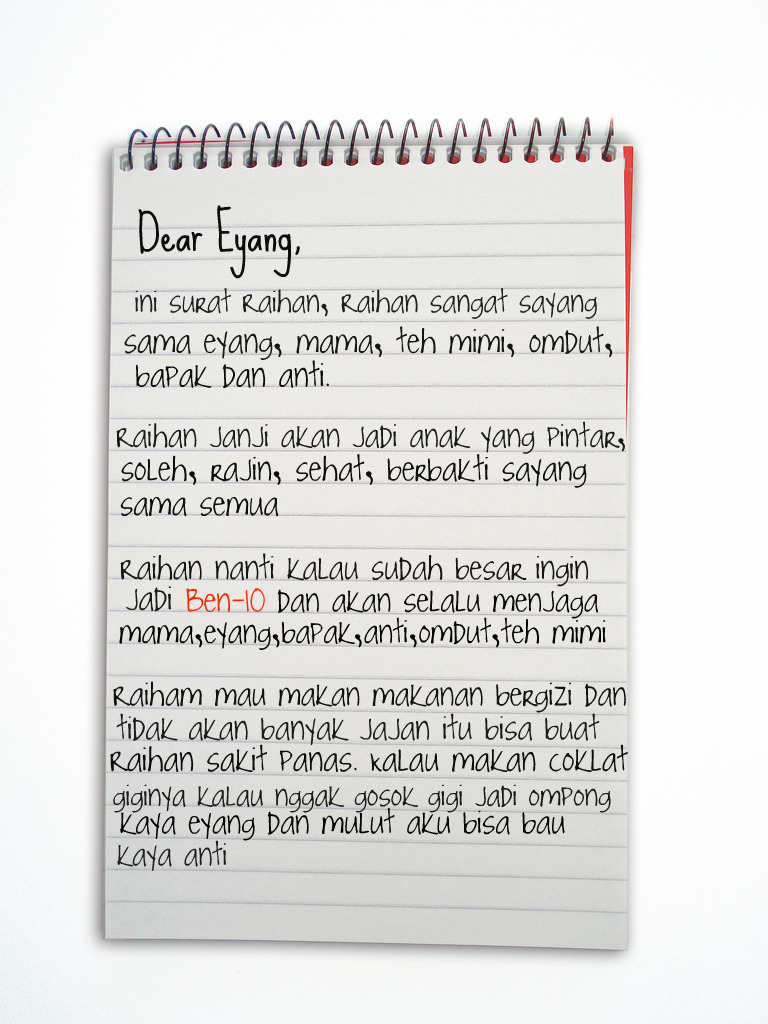 Dear Eyang,
ini surat Raihan, Raihan sangat sayang
sama eyang, mama, teh mimi, omDut,
baPak Dan anti.
Raihan JanJi akan JaDi anak yang Pintar,
soleh, RaJin, sehat, berbakti sayang
sama semua
Raihan nanti kalau suDah besar ingin
JaDi Ben-10 Dan akan selalu menJaga
mama,eyang,baPak,anti,omDut,teh mimi
Raiham mau makan makanan bergizi Dan
tiDak akan banyak JaJan itu bisa buat
Raihan sakit Panas. kalau makan coklat
giginya kalau nggak gosok gigi JaDi omPong
kaya eyang Dan mulut aku bisa bau
kaya anti